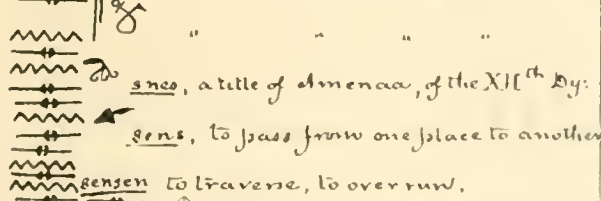 " " " "
snes, a title of Amenaa, of the XIIth Dy:
sens, to pass from one place to another
sensen to traverse, to over run,